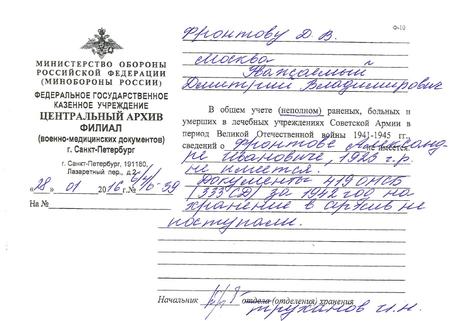 Ф-10
Фронтову Д. В.
Москва
Уважаемый
Дмитрий Владимирович
МИНИСТЕРСТВО ОБОРОНЫ
РОССИЙСКОЙ ФЕДЕРАЦИИ
(МИНОБОРОНЫ РОССИИ)
ФЕДЕРАЛЬНОЕ ГОСУДАРСТВЕННОЕ
КАЗЕННОЕ УЧРЕЖДЕНИЕ
ЦЕНТРАЛЬНЫЙ АРХИВ
ФИЛИАЛ
(военно-медицинских документов)
г. Санкт-Петербург
г. Санкт-Петербург, 191180,
Лазаретный пер., д.2
"28" 01 2016 г. №
На №
В общем учете (неполном) раненых, больных и
умерших в лечебных учреждениях Советской Армии в
период Великой Отечественной войны 1941-1945 гг.
сведений о Фронтове Александ-
ре Ивановиче, 1925 г.р. не имеется
не имеется.
Документы 419 ОМСБ
(333 СД) за 1942 год на
хранение в архив не
поступали.
Начальник отдела (отделения) хранения
Труханов И.Н.